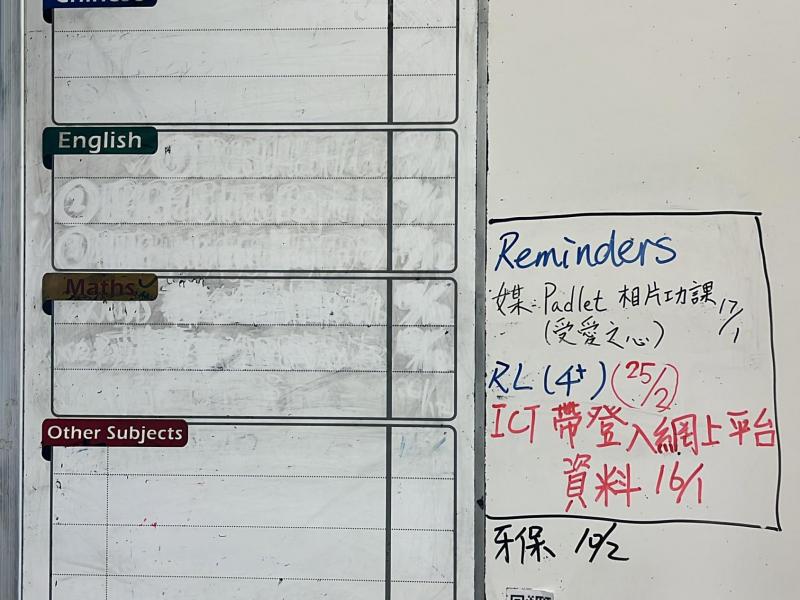 Chinese
English
Maths
Other Subjects
Reminders
媒: Padlet 相片功課 17/1
(受愛之心)
RL (4+) 25/2
ICT 帶登入網上平台
資料 16/1
牙保 10/2